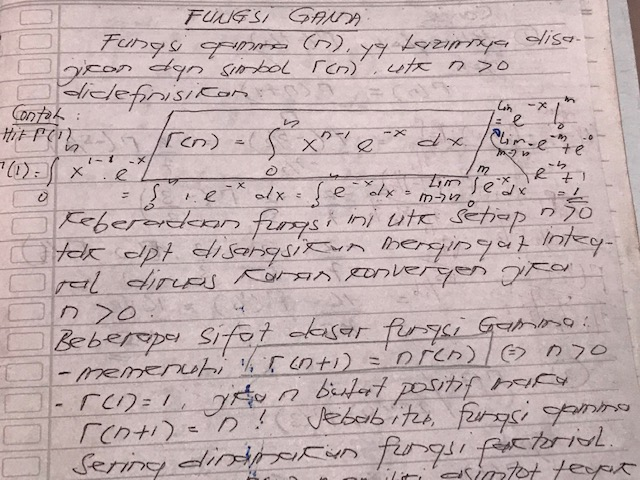 FUNGSI GAMA
Fungsi gamma (n), yg lazimnya disa-
jikan dgn simbol Γ(n), utk n > 0
didefinisikan
Contoh :
Hit Γ(1)
Γ(n) = ∫₀ⁿ xⁿ⁻¹ e⁻ˣ dx
Γ(1) = ∫₀ⁿ x¹⁻¹ . e⁻ˣ
= ∫₀ⁿ 1 . e⁻ˣ dx = ∫₀ⁿ e⁻ˣ dx = Lim m→n ∫₀ᵐ e⁻ˣ dx
Lim = e⁻ˣ |₀ᵐ
Lim m→n - e⁻ᵐ + e⁻⁰
e⁻ⁿ + 1
= 1
Keberadaan fungsi ini utk setiap n > 0
tdk dpt disangsikan mengingat integ-
ral diruas kanan konvergen jika
n > 0.
Beberapa sifat dasar fungsi Gamma :
- memenuhi Γ(n+1) = nΓ(n) ⇔ n > 0
- Γ(1) = 1, jika n bulat positif maka
Γ(n+1) = n ! Sebab itu, fungsi gamma
Sering dinamakan fungsi faktorial.
asimtot tegak